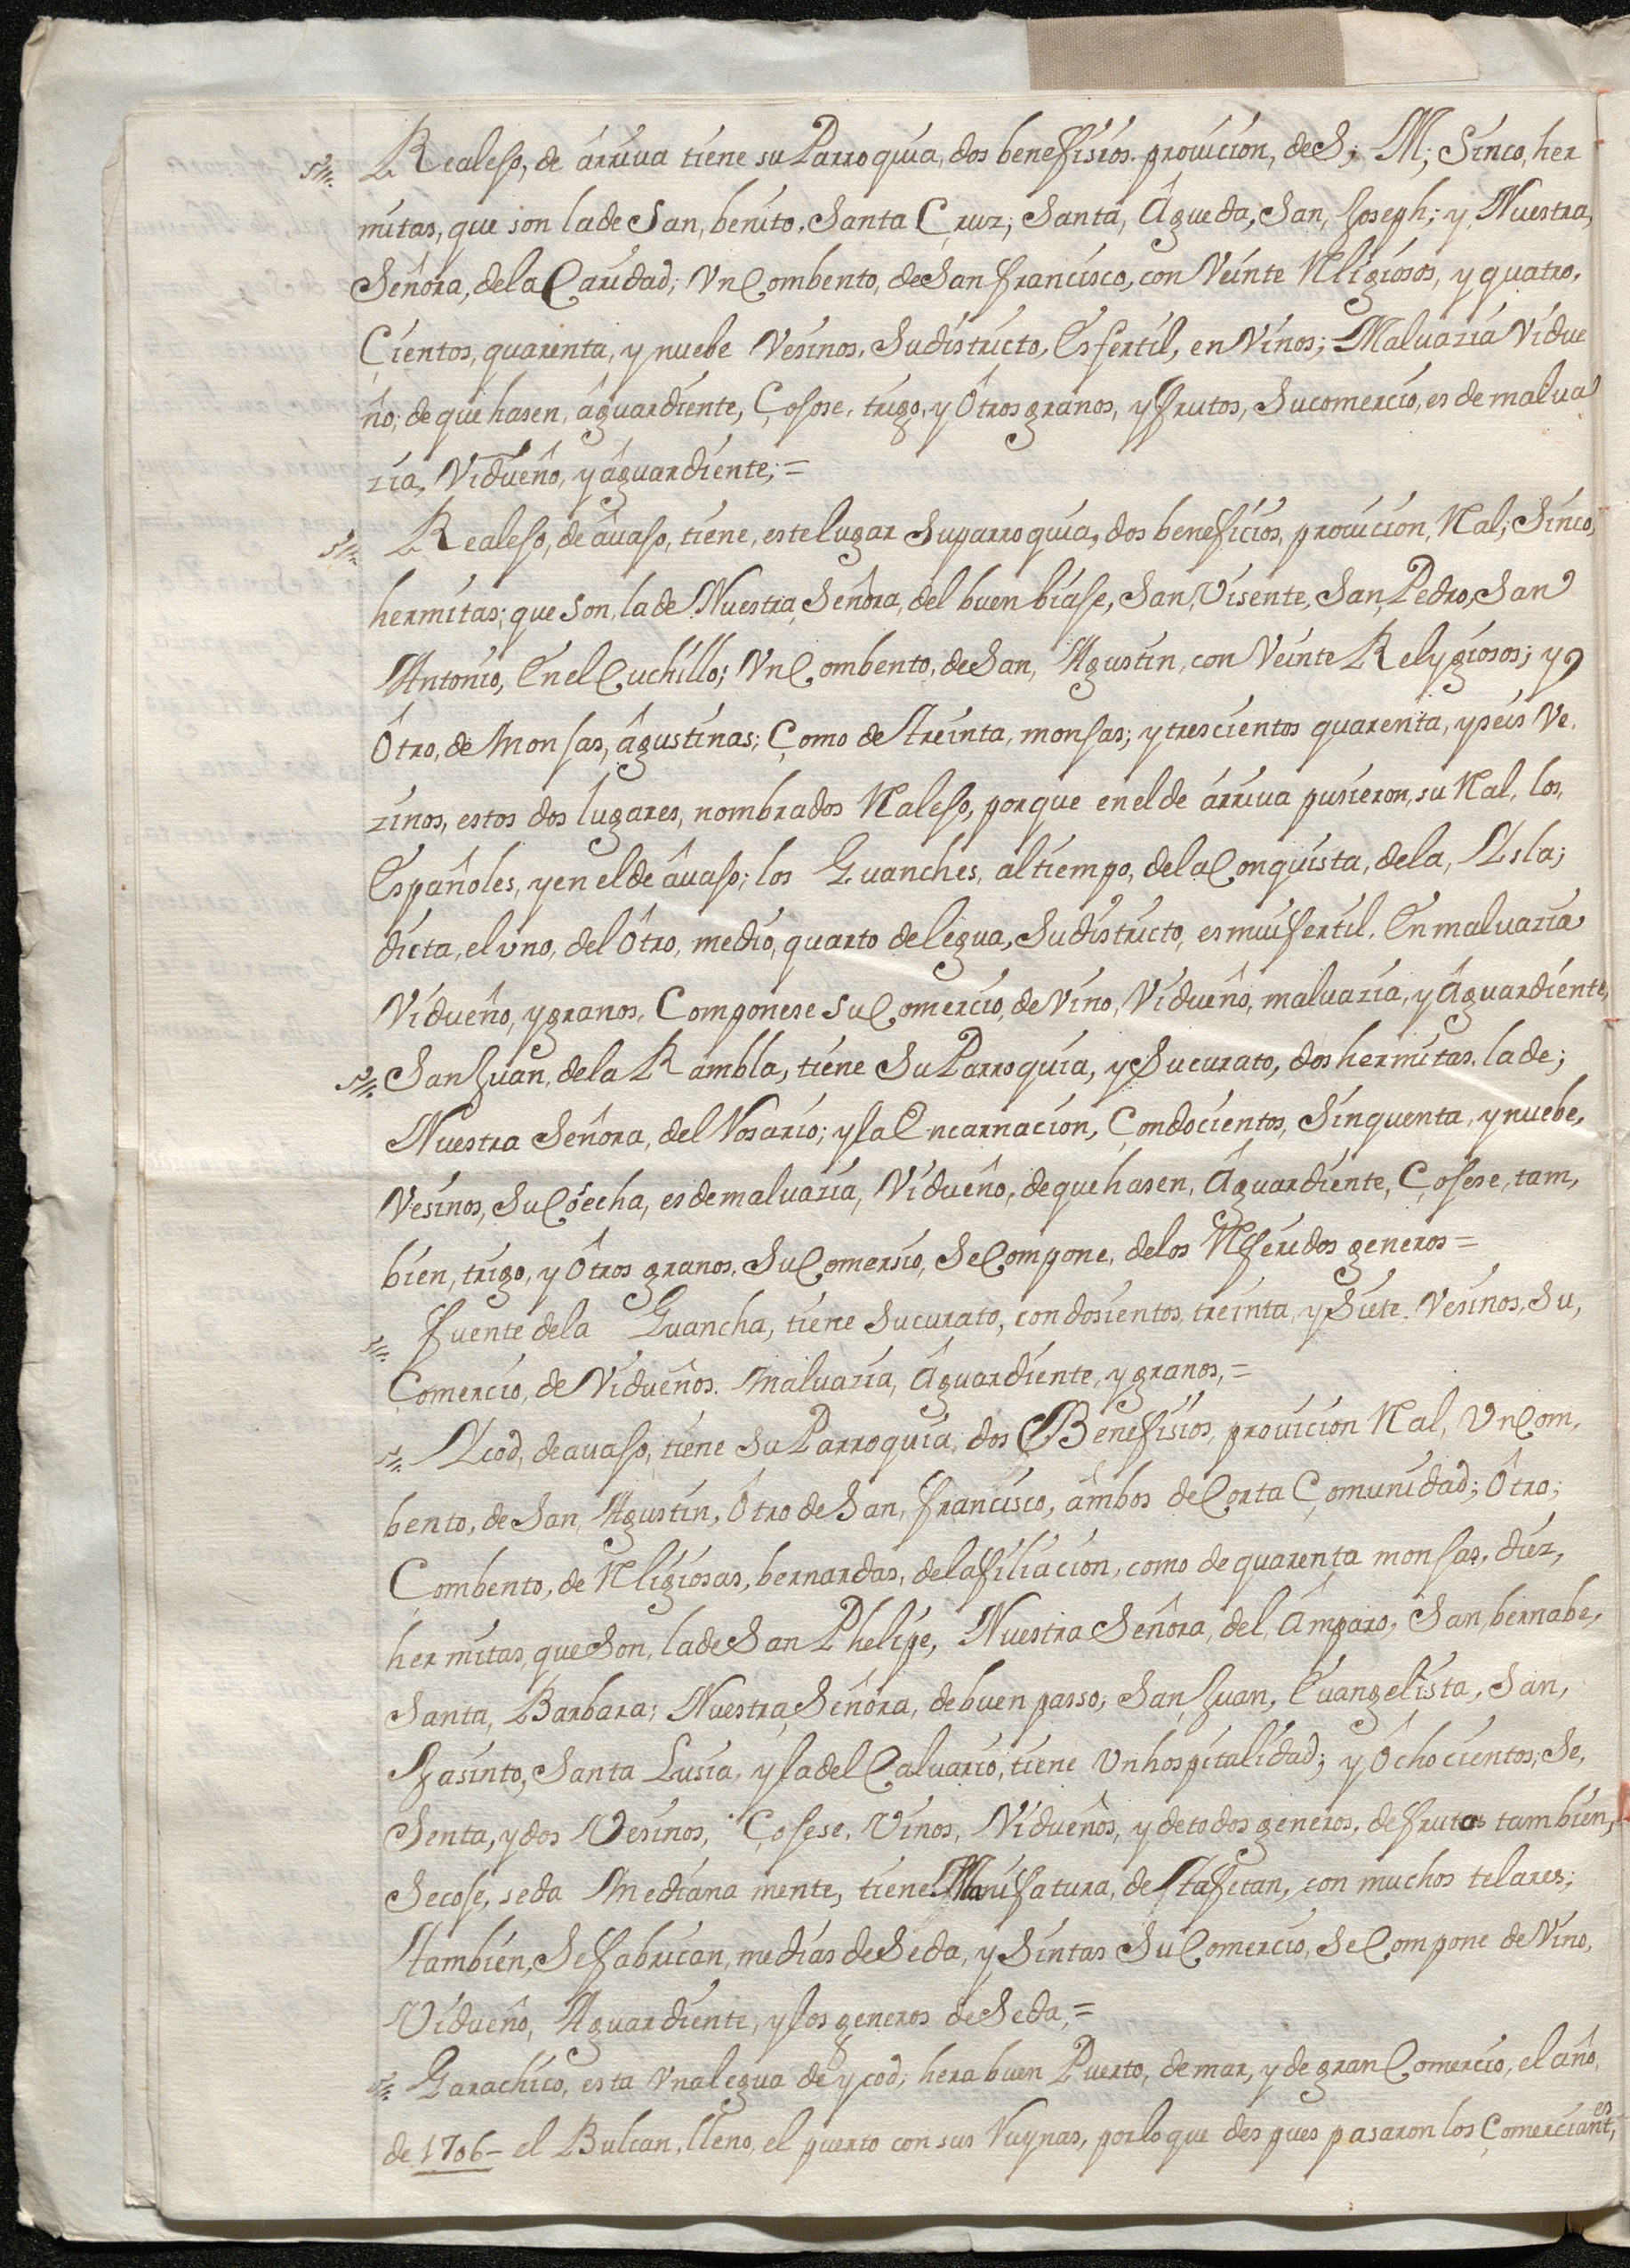 Realeso, de árriva tiene su Parroquia, dos benefisios. provicion, de S; M; Sinco, her
mitas, que son la de San, benito, Santa Cruz; Santa, Âgueda, San, Joseph; y, Nuestra,
Señora, de la Caridad; Vn Combento, de San francisco, con Veinte Rligiosos, y quatro,
Çientos, quarenta, y nuebe Vesinos. Su districto, Es fertil, en Vinos; Malvazia Vidue
ño; de que hasen, âguardiente, Çojese, trigo, y Ôtros granos, y frutos, Su comercio, es de malva
zia, Vidueño, y âguardiente; =
Realeso, de âvaso, tiene, este lugar Su parroquia, dos beneficios, provicion, Ral; Sinco,
hermitas; que Son, la de Nuestra Señora, del buen biase, San, Visente, San, Pedro, San
Antonio, En el Cuchillo; Vn Combento, de San, Agustin, con Veinte Relygiosos; y
Ôtro, de Monjas, âgustinas; Como de treinta, monjas; y trescientos quarenta, y seis Ve,
zinos, estos dos lugares, nombrados Raleso, porque en el de árriva pusieron, su Ral, los,
Españoles, y en el de âvaso; los Guanches, al tiempo, de la Conquista, de la, Ysla;
dicta, el vno, del Ôtro, medio, quarto de legua, Su districto, es mui fertil, En malvazia
Vidueño, y granos, Componese Su Comercio, de Vino, Vidueño, malvazia, y Âguardiente,
San Juan, de la Rambla, tiene Su Parroquia, y Su curato, dos hermitas, la de;
Nuestra Señora, del Rosario; y la Encarnacion, Çon docientos, Sinquenta, y nuebe,
Vesinos, Su Cosecha, es de malvazia, Vidueño, de que hasen, Âguardiente, Çojese, tam,
bien, trigo, y Ôtros granos, Su Comersio, Se Compone, de los Rferidos generos =
fuente de la Guancha, tiene Su curato, con dosientos, treinta, y Siete Vesinos, Su,
Çomercio, de Vidueños. Malvazia, Âguardiente, y granos, =
Ycod, de avaso, tiene Su Parroquia, dos Benefisios, provicion Ral, Vn Com,
bento, de San, Agustin, Ôtro de San, francisco, âmbos de Corta Çomunidad; Ôtro;
Combento, de Rligiosas, bernardas, de la filiacion, como de quarenta monjas, diez,
hermitas, que Son, la de San Phelipe, Nuestra Señora, del, Âmparo, San, bernabe,
Santa, Barbara; Nuestra, Señora, de buen passo; San, Juan, Evangelista, San,
Jasinto, Santa Lusia, y la del Calvario, tiene Vn hospitalidad; y Ôcho cientos; Se,
Senta, y dos Vesinos, Çojese, Vinos, Vidueños, y de todos generos, de frutos tambien,
Se cose, seda Mediana mente, tiene Manifatura, de tafetan, con muchos telares;
tambien, Se fabrican, medias de Seda, y Sintas Su Comercio, Se Compone de Vino,
Vidueño, Aguardiente, y los generos de Seda, =
Garachico, esta Vna legua de ycod, hera buen Puerto, de mar, y de gran Comercio, el año,
de 1706 - el Bulcan, lleno, el puerto con sus Ruynas, por lo que des pues pasaron los Çomerciantes,